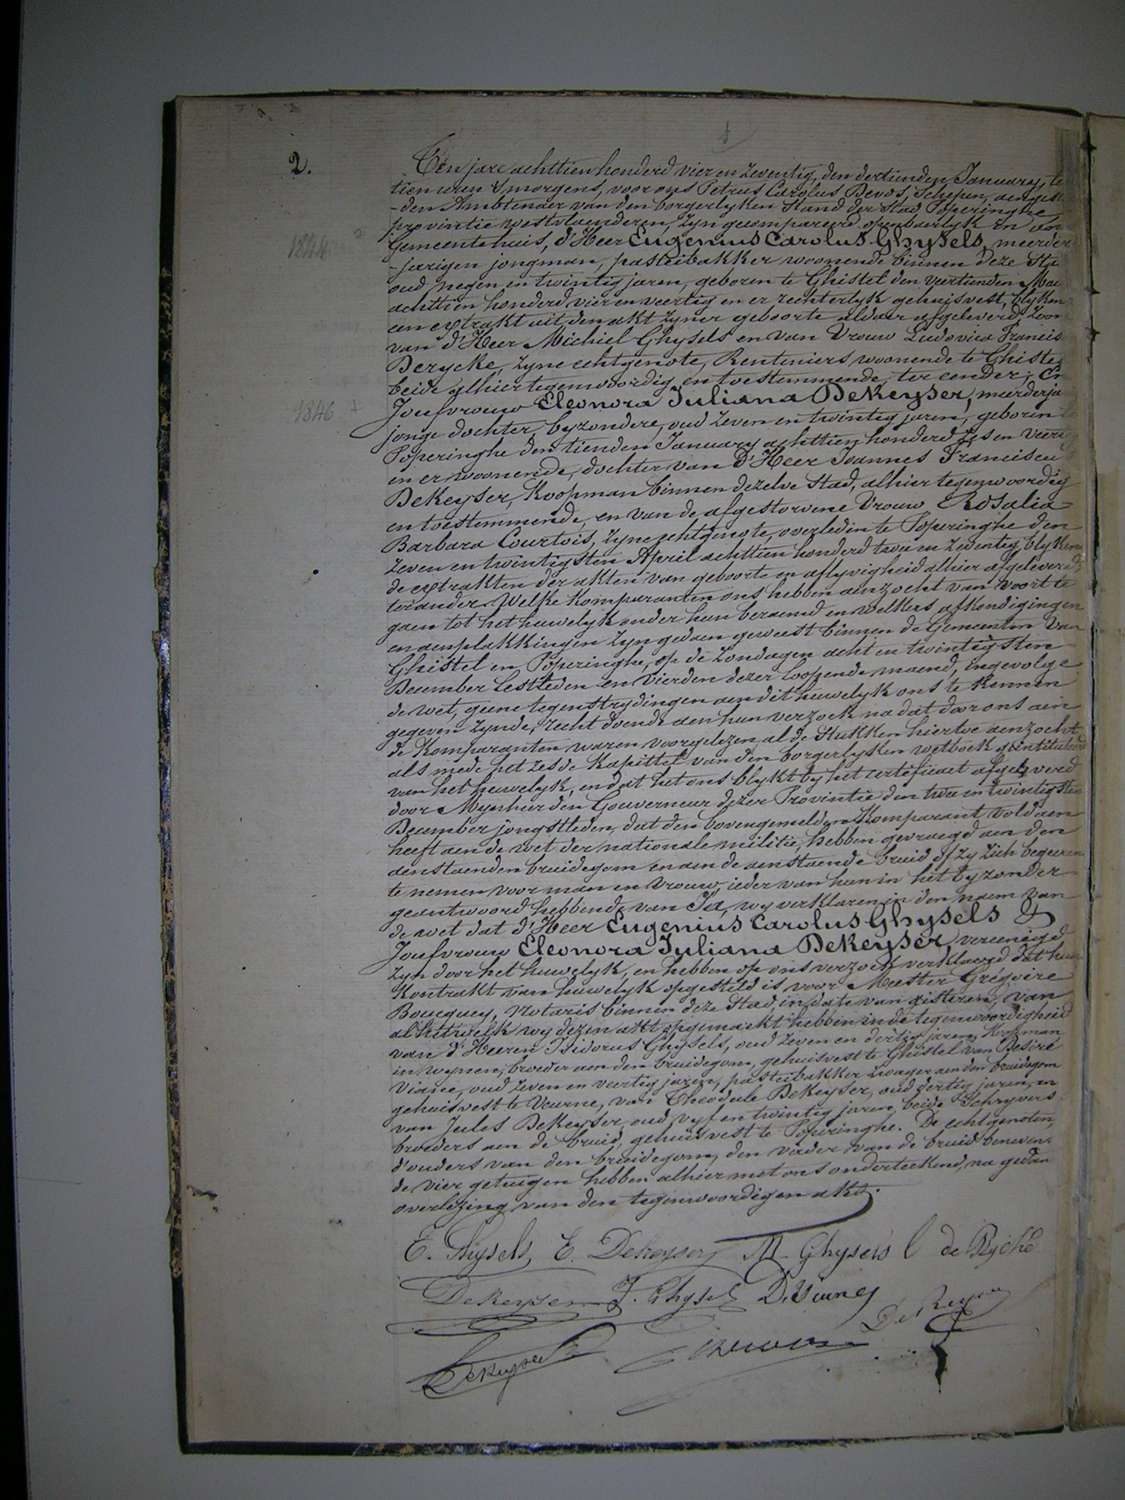 2.
Ten jare achttien honderd vier en zeventig, den dertienden January, te
tien uren 's morgens, voor ons Petrus Carolus Devos, Schepen, aengest
-den Ambtenaer van den borgerlyken Stand der Stad Poperinghe
provintie westvlaenderen, zyn gecompareerd openbaerlyk in ons
1844
Gemeentehuis, d'Heer Eugenius Carolus Ghysels, meerder
-jarigen jongman, pasteibakker woonende binnen deze Sta
oud negen en twintig jaren, geboren te Ghistel den veertienden Mei
achttien honderd vier en veertig en er rechterlyk gehuisvest, blyken
een extrakt uit den akt zyner geboorte aldaer afgeleverd, Zoon
van d'Heer Michiel Ghysels en van Vrouw Ludovica Francis
Derycke, zyne echtgenote, Renteniers woonende te Ghiste
beide alhier tegenwoordig en toestemmende, ter eender; En
1846
Joufvrouw Eleonora Juliana DeKeyser, meerderja
jonge dochter, byzondere, oud zeven en twintig jaren, geboren te
Poperinghe den tienden January achttien honderd zes en veerti
en er woonende, dochter van D'Heer Joannes Franciscu
DeKeyser, Koopman binnen dezelve Stad, alhier tegenwoordig
en toestemmende, en van de afgestorvene Vrouw Rosalia
Barbara Courtois, zyne echtgenote, overleden te Poperinghe den
zeven en twintigsten April achttien honderd twee en zeventig, blykens
de extrakten der akten van geboorte en aflyvigheid alhier afgeleverd
ter ander. Welke komparanten ons hebben aenzocht van voort te
gaen tot het huwelyk onder hun beraemd en welkers afkondigingen
en aenplakkingen zyn gedaen geweest binnen de Gemeenten van
Ghistel en Poperinghe, op de Zondagen acht en twintigsten
December lestleden en vierden dezer loopende maend, ingevolge
de wet, geene tegenstrydingen aen dit huwelyk ons te kennen
gegeven zynde, recht doende aen hun verzoek na dat door ons aen
de Komparanten waren voorgelezen al de Stukken hiertoe aenzocht
als mede het zesde Kapittel van den borgerlyken wetboek geintituleerd
van het huwelyk, en dat het ons blykt by het certificaet afgeleverd
door Mynheer den Gouverneur dezer Provintie den twee en twintigsten
December jongstleden, dat den bovengemelden Komparant voldaen
heeft aen de wet der nationale militie, hebben gevraegd aen den
aenstaenden bruidegom en aen de aenstaende bruid of zy zich begeeren
te nemen voor man en vrouw, ieder van hun in het byzonder
geantwoord hebbende van Ja, wy verklaren in den naem van
de wet dat d'Heer Eugenius Carolus Ghysels &
Joufvrouw Eleonora Juliana DeKeyser, vereenigd
zyn door het huwelyk, en hebben op ons verzoek verklaerd dat hun
Kontrakt van huwelyk opgesteld is voor Meester Grégoire
Boucquey, Notaris binnen deze Stad, in date van gisteren, van
al hetwelk wy dezen akt opgemaekt hebben in de tegenwoordigheid
van d'Heeren Isidorus Ghysels, oud zeven en dertig jaren, Koopman
in wynen, broeder aen den bruidegom, gehuisvest te Ghistel van Desiré
Viane, oud zeven en veertig jaren, pasteibakker zwager aen den bruidegom
gehuisvest te Veurne, van Theodule DeKeyser, oud dertig jaren, en
van Jules DeKeyser, oud vyf en twintig jaren, beide Schryvers
broeders aen de bruid, gehuisvest te Poperinghe. De echtgenoten,
d'ouders van den bruidegom, den vader van de bruid benevens
de vier getuigen hebben alhier met ons onderteekend, na gedaen
overlezing van den tegenwoordigen akt.
E. Ghysels, E. Dekeyser M. Ghysels L de Ryche
Dekeyser J. Ghysels D. Viane
DeKeyser
DeKeyser